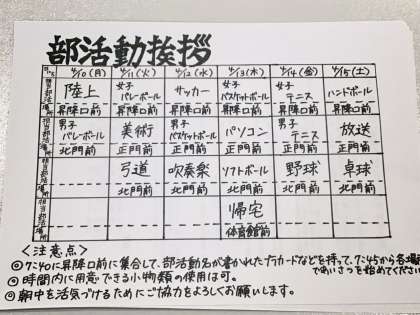 部活動挨拶
日にち 4/10(月) 4/11(火) 4/12(水) 4/13(木) 4/14(金) 4/15(土)
担当部活 陸上 女子バレーボール サッカー 女子バスケットボール 女子テニス ハンドボール
場所 昇降口前 昇降口前 昇降口前 昇降口前 昇降口前 昇降口前
担当部活 男子バレーボール 美術 男子バスケットボール パソコン 男子テニス 放送
場所 北門前 正門前 正門前 正門前 正門前 正門前
担当部活 弓道 吹奏楽 ソフトボール 野球 卓球
場所 北門前 北門前 北門前 北門前 北門前
担当部活 帰宅
場所 体育館前
<注意点>
◎7:40に昇降口前に集合して、部活動名が書かれたプラカードなどを持って、7:45から各場所
であいさつを始めてください
◎時間内に用意できる小物類の使用は可。
◎朝中を活気づけるためにご協力をよろしくお願いします。